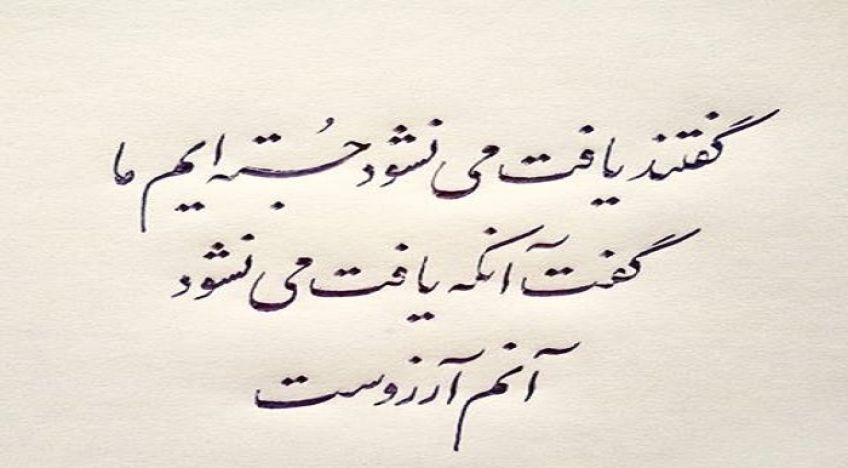 گفتند یافت می نشود جُسته ایم ما
گفت آنکه یافت می نشود
آنم آرزوست